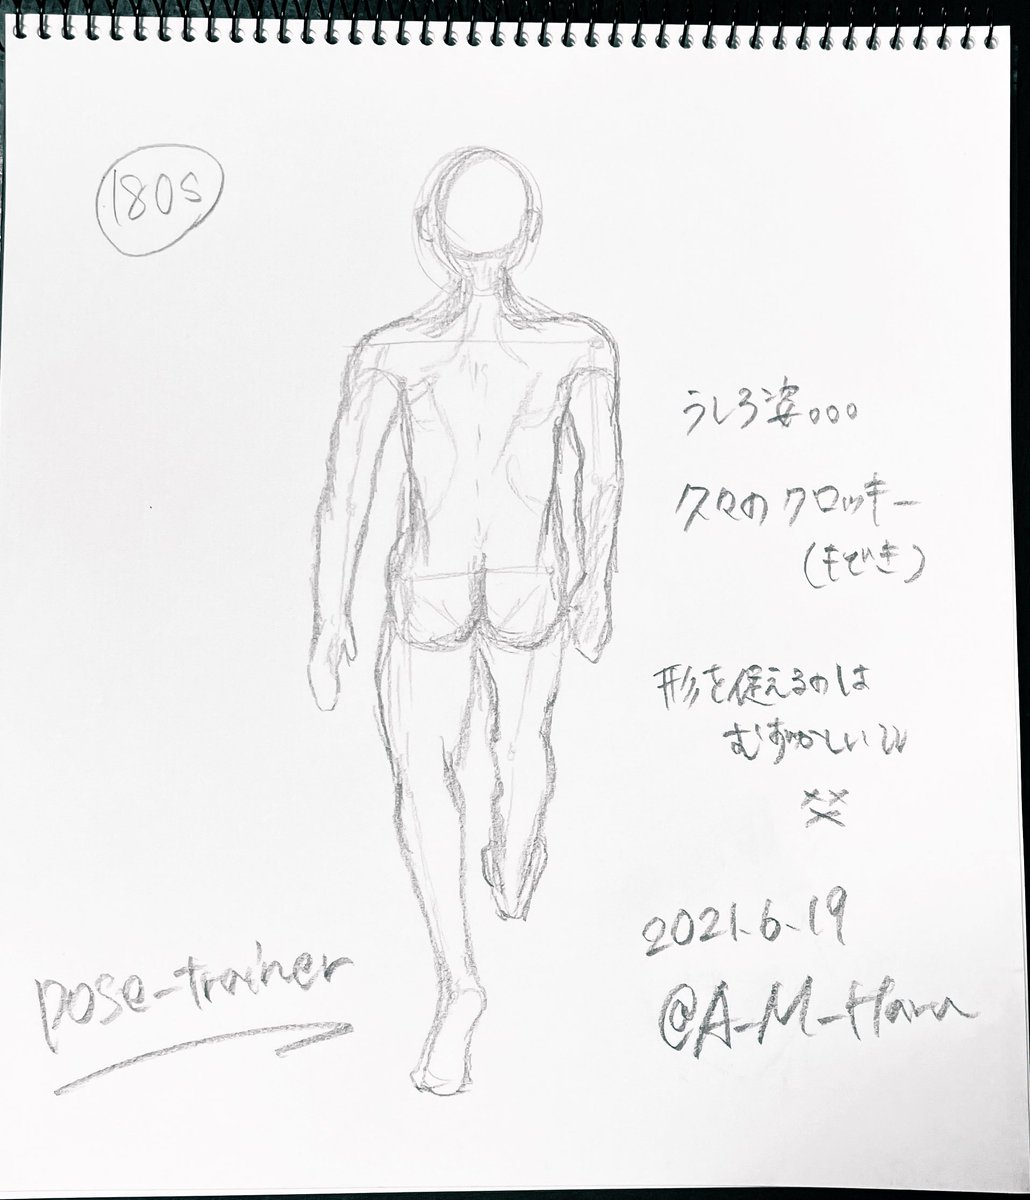 180s
うしろ姿。。。
久々のクロッキー
(もどき)
形を捉えるのは
むずかしいw
2021.6.19
@A_M_Hara
pose-trainer